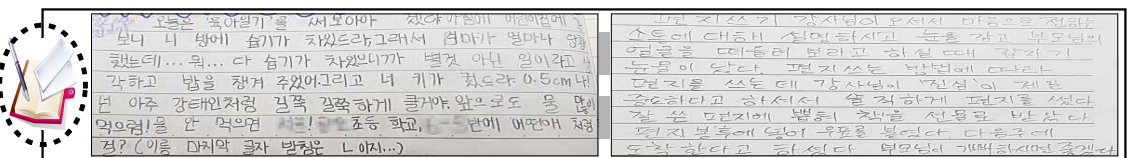 오늘은 '육아일기'를 써보아야 겠다 아침에 어린이집에
보니 니 방에 습기가 차있드라, 그래서 엄마가 얼마나
했는데... 뭐... 다 습기가 차있으니가 별것 아닌 일이라고
각하고 밥을 챙겨 주었어. 그리고 너 키가 컸드라. 0.5cm나!
넌 아주 강태인처럼 길쭉 길쭉하게 클거야. 앞으로도 물 많이
먹으렴! 물 안 먹으면 ! 초등 학교, 반에 어떤애 처럼
걸? (이름 마지막 글자 받침은 ㄴ이지...)
편지쓰기 강사님이 오셔서 마음으로 전하는
소통에 대해 설명하시고 눈을 감고 부모님의
얼굴을 떠올려 보라고 하실 때 갑자기
눈물이 났다. 편지쓰는 방법에 따라
편지를 쓰는데 강사님이 '진심'이 제일
중요하다고 하셔서 솔직하게 편지를 썼다
잘 쓴 편지에 뽑혀 책을 선물로 받았다
편지 봉투에 넣어 우표를 붙였다 다음주에
도착한다고 하셨다 부모님이 기뻐하시면 좋겠다